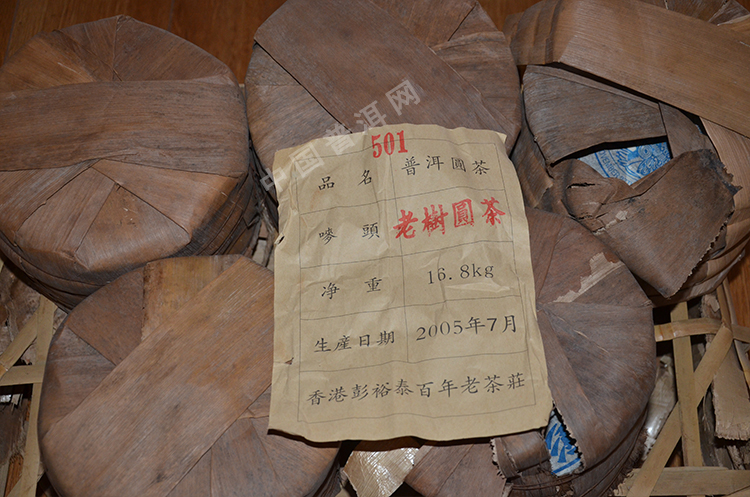 501
品名 普洱圓茶
嘜頭 老樹圓茶
净重 16.8kg
生産日期 2005年7月
香港彭裕泰百年老茶莊
中国普洱网